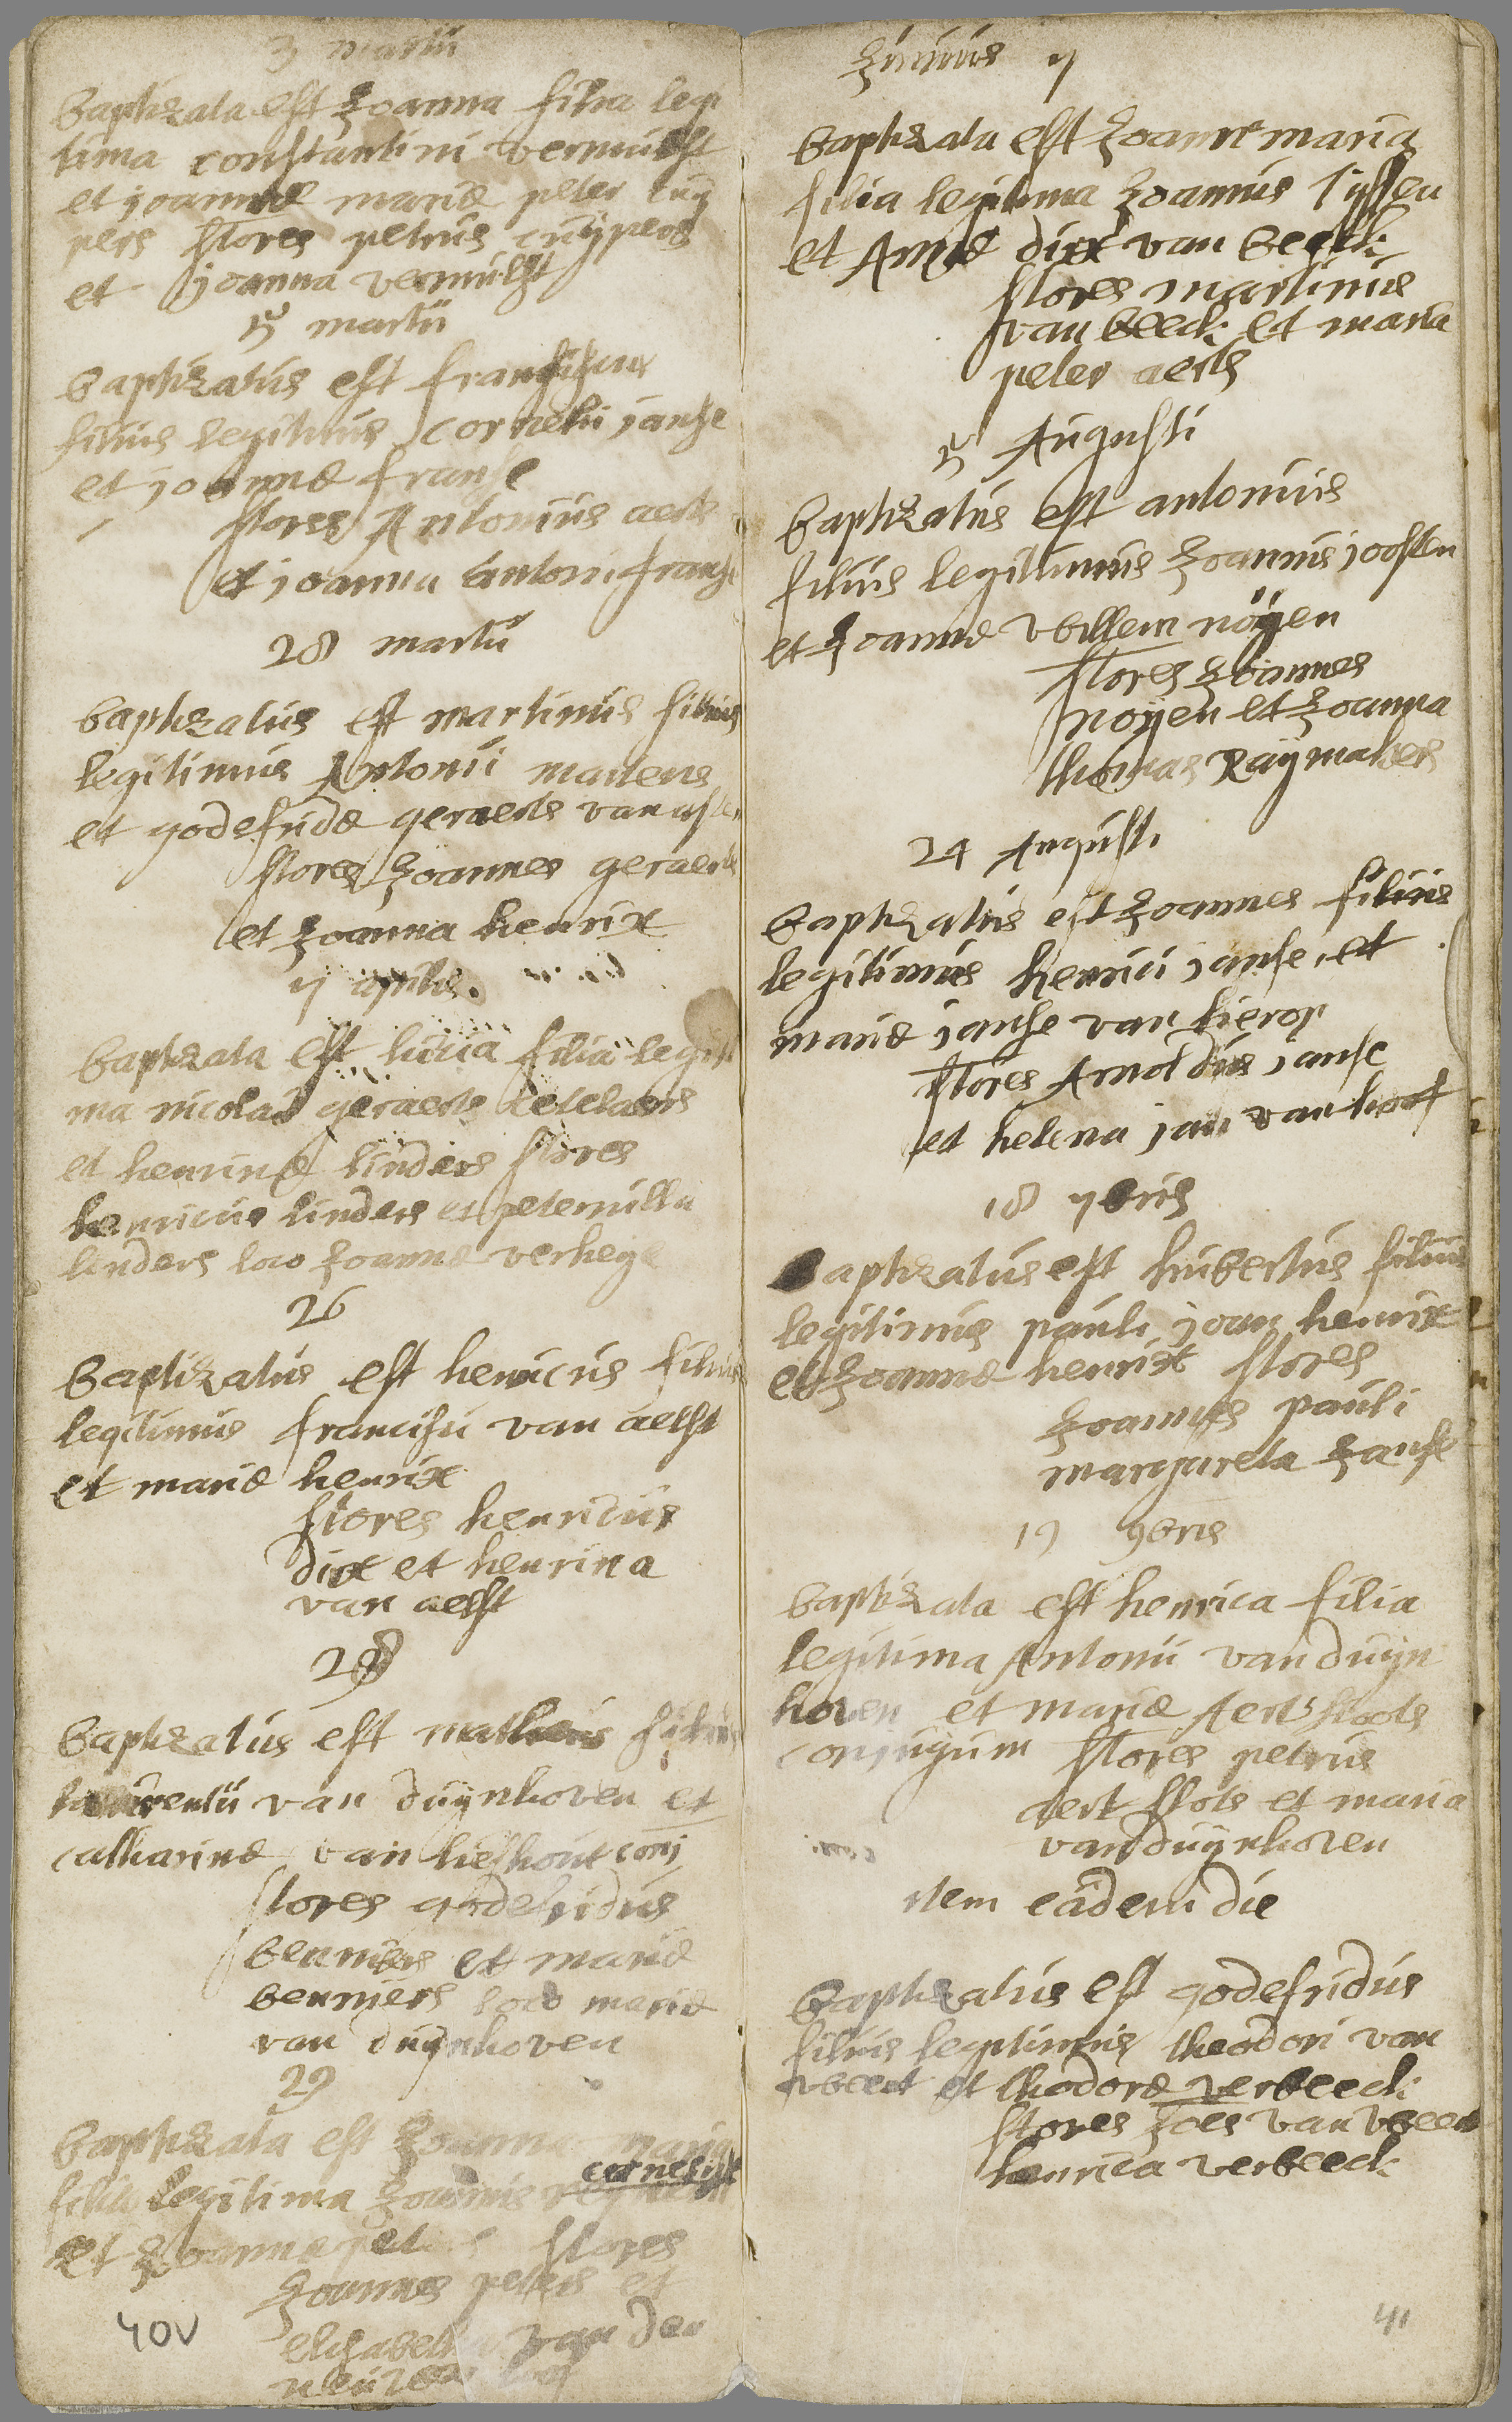 3 martii
baptizata est Joanna filia legi
tima constantini vermulst
et joannae mariae peter cuy
pers stores petrus cuÿpers
et joanna vermulst
5 martii
baptizatus est fransiscus
filius legitimus cornelii janse
et joannae franse
stores Antonius aerts
et joanna antoni franse
28 martii
baptizatus est martinus filius
legitimus Antonii martens
et godefridae geraerts van
stores Joannes geraerts
et Joanna henrix
7 aprilis.
baptizata est lucia filia legiti
ma nicolai geraerts ketelaers
et henrinae linders stores
henricus linders et peternilla
linders loco Joannae verheye
26
baptizatus est henricus filius
legitimus francisci van aelst
et mariae henrix
stores henricus
dirx et henrina
van aelst
28
baptizatus est matheus filius
laurentii van duÿnhoven et
catharinae van lieshout conj
stores godefridus
benniers et mariae
benniers loco mariae
van duÿnhoven
29
baptizata est Joanna maria
cornelis
filia legitima Joannis
et Joannae peters stores
Joannes peters et
elisabeth van den
40v
Junius 7
baptizata est Joanne maria
filia legitima Joannis tijssen
et Annae dirx van beeck
stores martinus
van beeck et maria
peter aerts
5 Augusti
baptizatus est antonius
filius legittimus Joannis joosten
et Joannae willem nöyen
stores Joannes
noÿen et Joanna
thomas Raÿmakers
24 Augusti
baptizatus est Joannes filius
legitimus henrici janse, et
mariae janse van lierop
stores Arnoldus janse
et helena jan van hoof
18 7bris
baptizatus est hubertus filius
legitimus pauli joan henrix
et Joannae henrix stores
Joannes pauli
margareta Janse
19 9bris
baptizata est henrica filia
legitima Antonii van duÿn
hoven et mariae Aert sloots
conjugum stores petrus
aert slots et maria
van duÿnhoven
item eadem die
baptizatus est godefridus
filius legitimus theodori van
weert et thodorae verbeeck
stores Joes van weert
henrica verbeeck
41